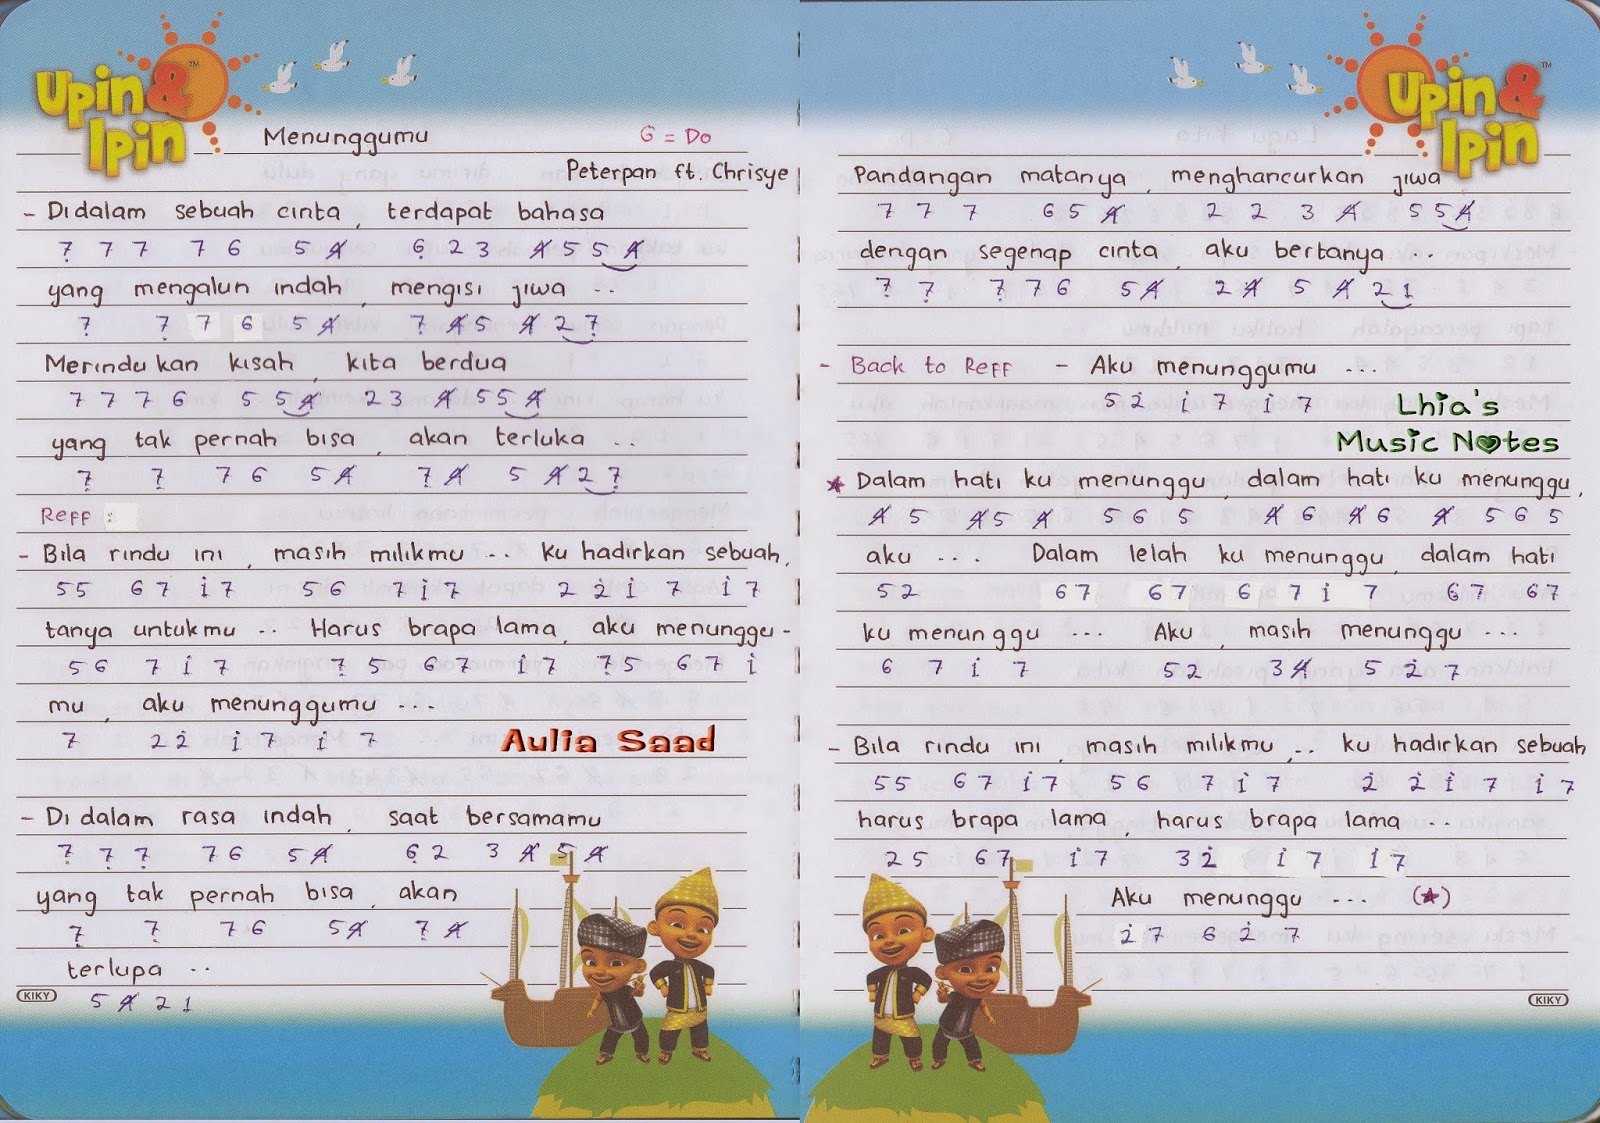 Upin & Ipin™
Menunggumu G = Do
Peterpan ft. Chrisye
- Di dalam sebuah cinta, terdapat bahasa
7̣ 7 7 7 7 6 5 4̸ 6̣ 2 3 4̸ 5 5 4̸
yang mengalun indah, mengisi jiwa ..
7̣ 7̣ 7 6 5 4̸ 7̣ 4̸ 5 4̸ 2 7̣
Merindukan kisah, kita berdua
7 7 7 6 5 5 4̸ 2 3 4̸ 5 5 4̸
yang tak pernah bisa, akan terluka ..
7̣ 7̣ 7 6 5 4̸ 7̣ 4̸ 5 4̸ 2 7̣
Reff :
- Bila rindu ini, masih milikmu .. ku hadirkan sebuah,
5 5 6 7 1̇ 7 5 6 7 1̇ 7 2 2̇ 1̇ 7 1̇ 7
tanya untukmu .. Harus brapa lama, aku menunggu -
5 6 7 1̇ 7 7̣ 5 6 7 1̇ 7 7̣ 5 6 7 1̇
mu, aku menunggumu ...
7 2 2̇ 1̇ 7 1̇ 7
Aulia Saad
- Di dalam rasa indah, saat bersamamu
7̣ 7̣ 7̣ 7 6 5 4̸ 6̣ 2 3 4̸ 5 4̸
yang tak pernah bisa, akan
7̣ 7̣ 7 6 5 4̸ 7̣ 4̸
terlupa ..
5 4̸ 2 1
KIKY
Upin & Ipin™
Pandangan matanya, menghancurkan jiwa
7 7 7 6 5 4̸ 2 2 3 4̸ 5 5 4̸
dengan segenap cinta, aku bertanya ..
7̣ 7̣ 7̣ 7 6 5 4̸ 2 4̸ 5 4̸ 2 1
- Back to Reff - Aku menunggumu ...
5 2̇ 1̇ 7 1̇ 7
Lhia's
Music Notes
★ Dalam hati ku menunggu, dalam hati ku menunggu,
4̸ 5 4̸ 5 4̸ 5 6 5 4̸ 6 4̸ 6 4̸ 5 6 5
aku .... Dalam lelah ku menunggu, dalam hati
5 2 6 7 6 7 6 7 1̇ 7 6 7 6 7
ku menunggu ... Aku, masih menunggu ...
6 7 1̇ 7 5 2 3 4̸ 5 2̇ 7
- Bila rindu ini, masih milikmu, .. ku hadirkan sebuah
5 5 6 7 1̇ 7 5 6 7 1̇ 7 2̇ 2̇ 1̇ 7 1̇ 7
harus brapa lama, harus brapa lama ..
2 5 6 7 1̇ 7 3 2̇ 1̇ 7 1̇ 7
Aku menunggu ... (★)
2̇ 7 6 2̇ 7
KIKY